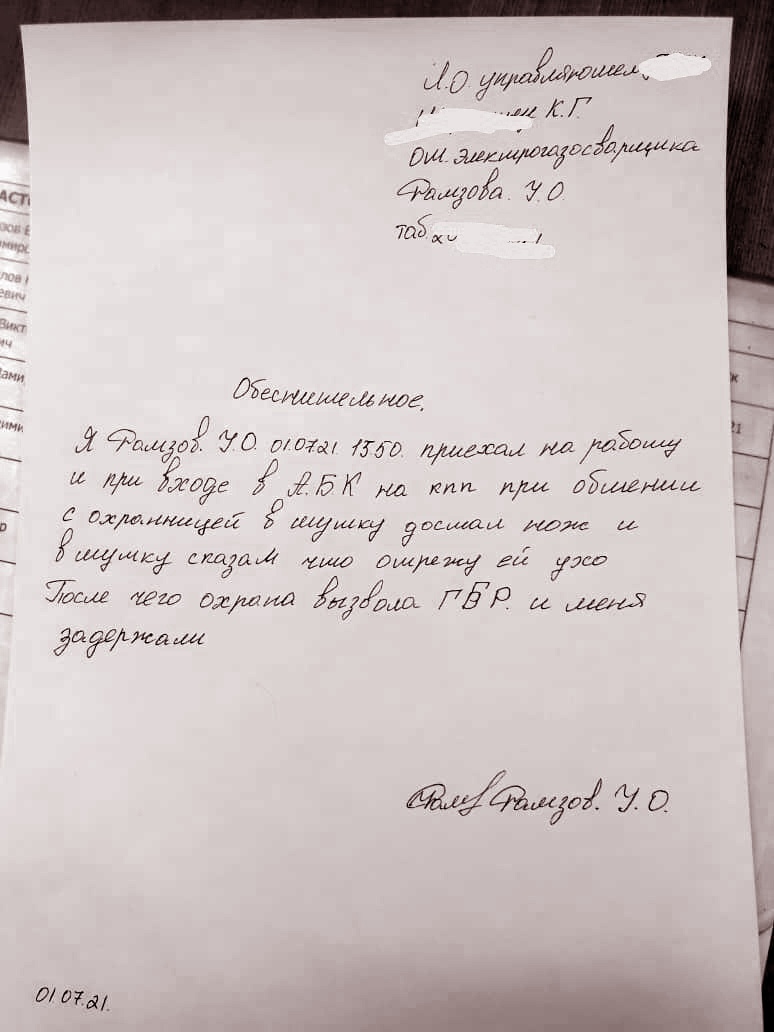 И.О. управляющем
К.Г.
от. электрогазосварщика
Рамзова. У.О.
таб.
Обеснительное.
Я Рамзов. У.О. 01.07.21. 15.50. приехал на работу
и при входе в А.Б.К на кпп при обшении
с охранницей в шутку достал нож и
в шутку сказал что отрежу ей ухо
После чего охрана вызвола ГБР. и меня
задержали
Рамзов. У.О.
01.07.21.